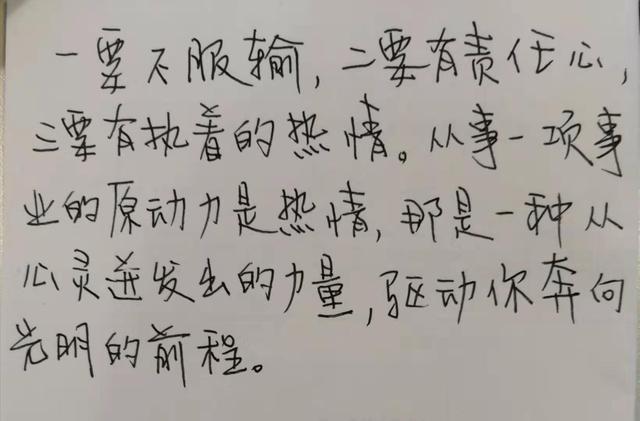 一要不服输,二要有责任心,
三要有执着的热情。从事一项事
业的原动力是热情,那是一种从
心灵迸发出的力量,驱动你奔向
光明的前程。